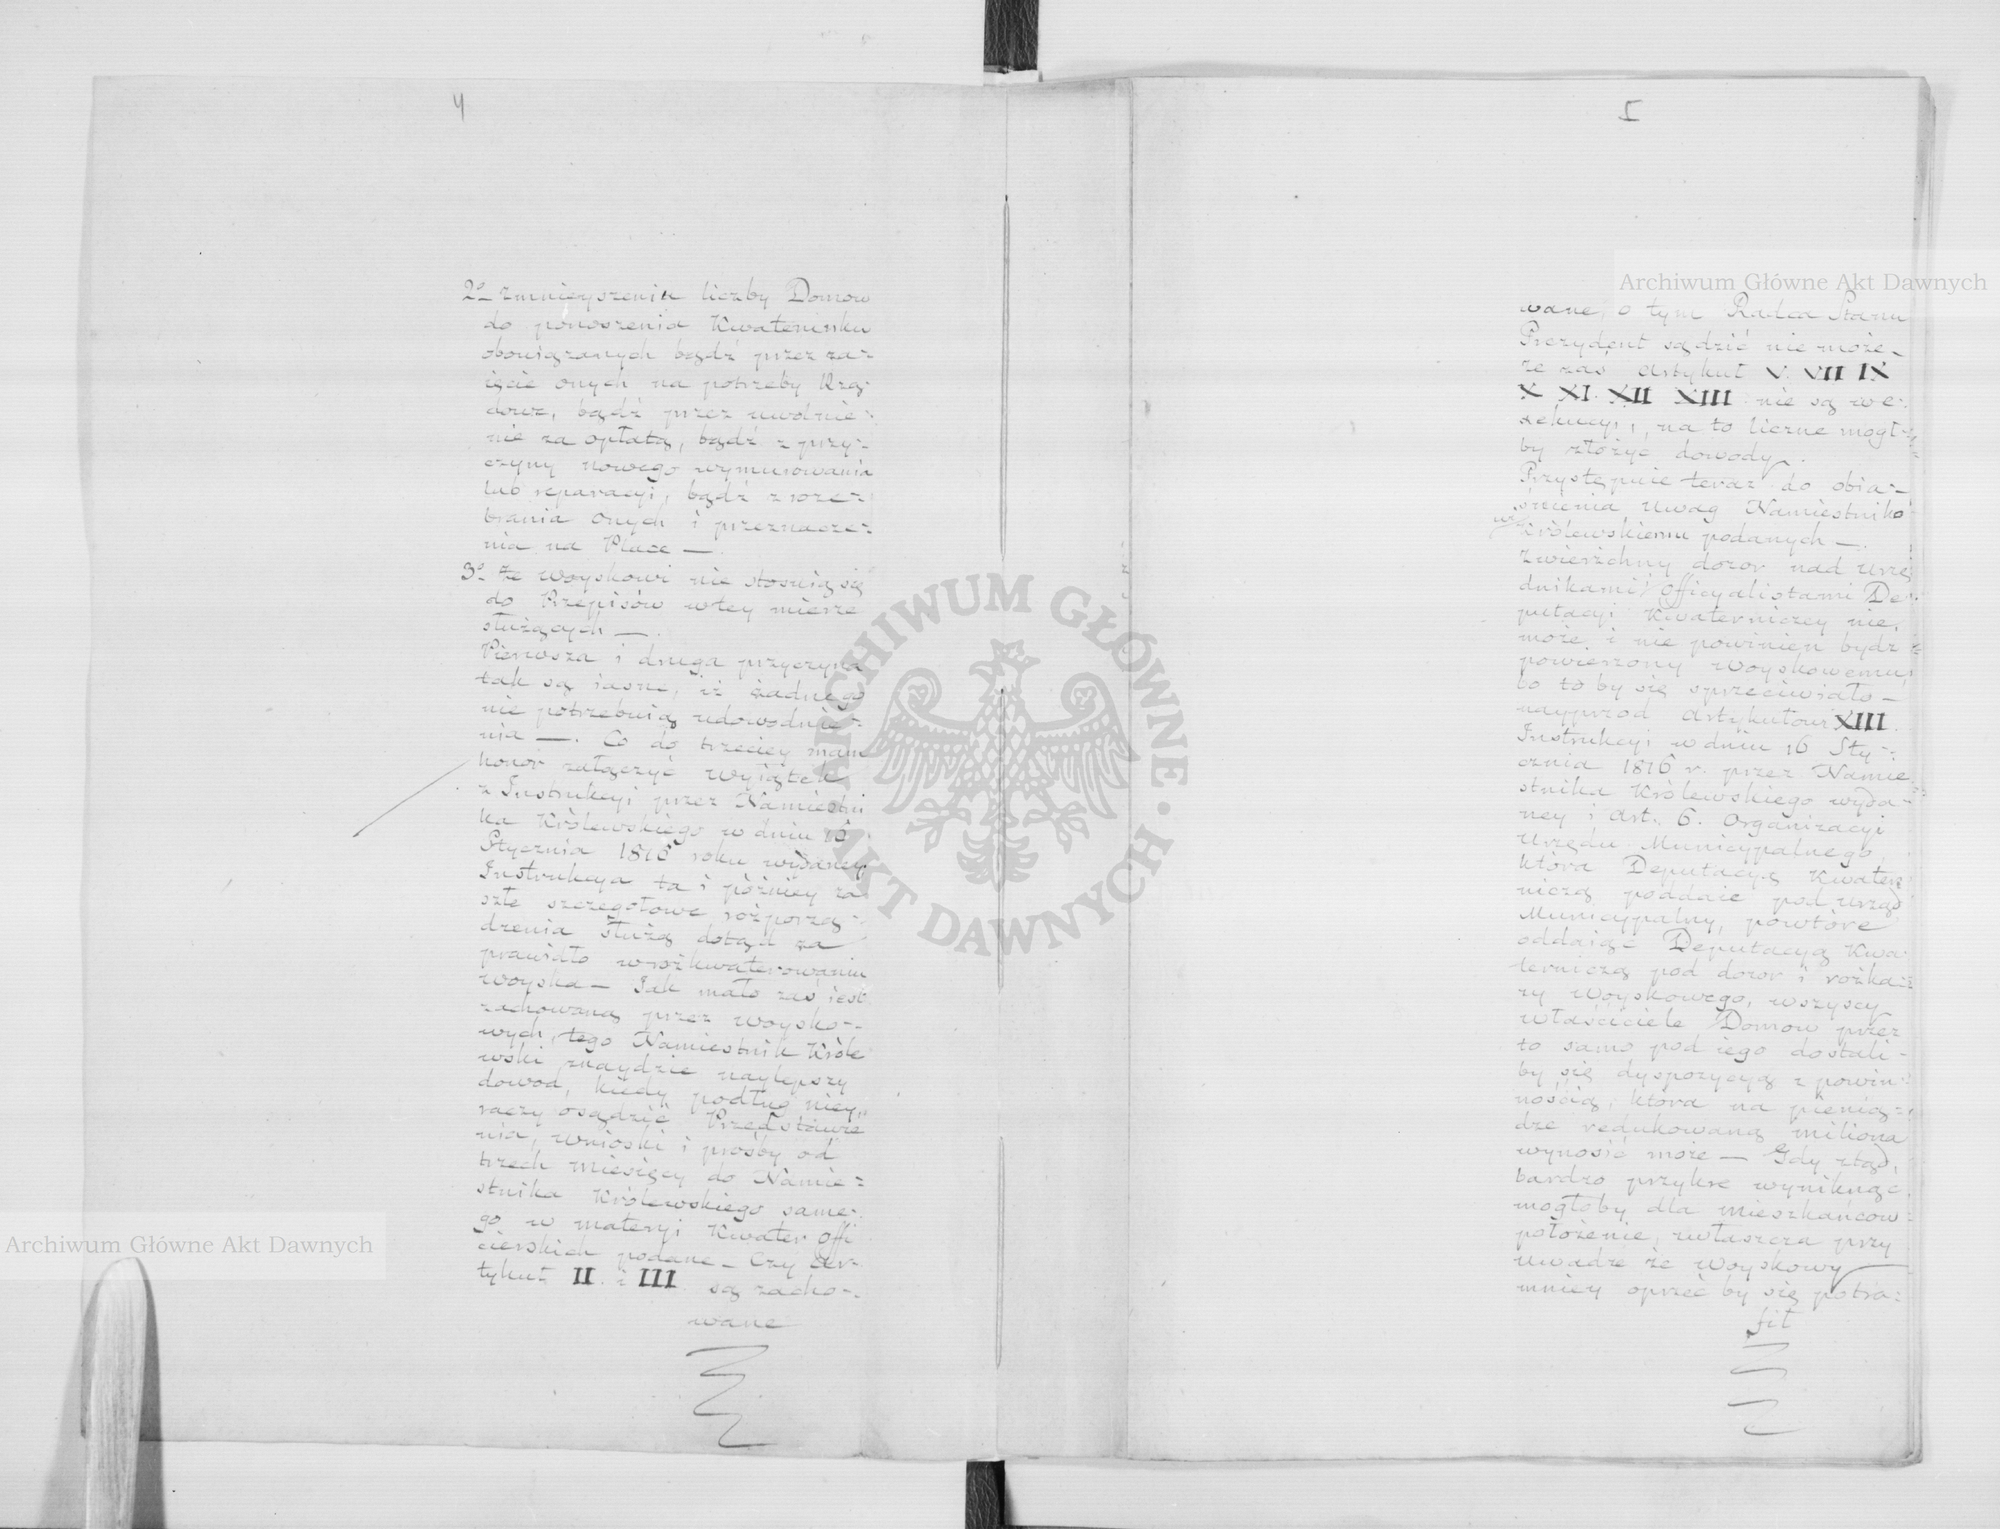 4
2º zmnieyszenia liczby Domow
do ponoszenia Kwaterunku
obowiązanych bądź przez za-
ięcie onych na potrzeby Rzą-
dowe, bądź przez uwolnie-
nie za opłatą, bądź z przy-
czyny nowego wymurowania
lub reparacyi, bądź z roze-
brania onych i przeznacze-
nia na Place —.
3º że woyskowi nie stosuią się
do Przepisów w tey mierze
służących —.
Pierwsza i druga przyczyna
tak są iasne, iż żadnego
nie potrzebuią udowodnie-
nia —. Co do trzeciey mam
honor załączyć wyiątek
z Instrukcyi przez Namiestni
ka Królewskiego w dniu 16
Stycznia 1816 roku wydaney
Instrukcya ta i póżniey za
szłe szczegołowe rozporzą-
dzenia służą dotąd za
prawidło w rozkwaterowaniu
woyska — Jak mało zaś iest
zachowaną przez woysko-
wych, tego Namiestnik Króle
wski znaydzie naylepszy
dowod, kiedy podług niey
raczy osądzić Przedstawie
nia, wnioski i prośby od
trzech miesięcy do Namie-
stnika Królewskiego same-
go w materyi Kwater Offi
cierskich podane — Czy Ar-
tykuł II. i III są zacho-
wane
5
wane, o tym Radca Stanu
Prezydent sądzić nie może
że zaś Artykuł V. VII IX
X XI. XII XIII nie są w e-
xekucyi, na to liczne mogł-
by złożyć dowody.
Przystępuie teraz do obia-
śnienia uwag Namiestniko
wi Królewskiemu podanych —.
Zwierzchny dozor nad urzę
dnikami i Officyalistami De-
putacyi Kwaterniczey nie
może i nie powinien bydz
powierzony woyskowemu,
bo to by się sprzeciwiało —
nayprzod Artykułowi XIII.
Instrukcyi w dniu 16 Sty-
cznia 1816 r. przez Namie
stnika Królewskiego wyda-
ney i Art. 6. Organizacyi
Urzędu Municypalnego,
która Deputacyą Kwater
niczą poddaie pod urząd
Municypalny, powtóre
oddaiąc Deputacyą Kwa-
terniczą pod dozor i rozka-
zy Woyskowego, wszyscy
właściciele Domow przez
to samo pod iego dostali-
by się dyspozycyą z powin-
nością, która na pienią-
dze redukowaną miliona
wynosić może — Gdy ztąd,
bardzo przykre wyniknąć
mogłoby dla mieszkańcow
położenie, zwłaszcza przy
uwadze że woyskowy
mniey oprzeć by się potra-
fił
Archiwum Główne Akt Dawnych
Archiwum Główne Akt Dawnych
ARCHIWUM GŁÓWNE · AKT DAWNYCH ·